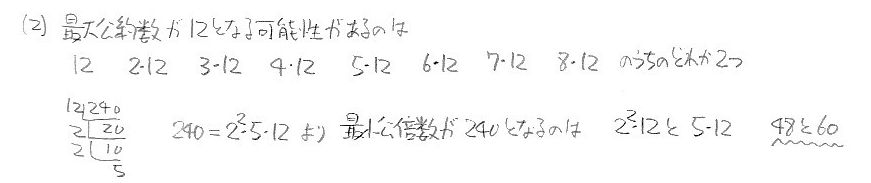 (2) 最大公約数が12となる可能性があるのは
12 2・12 3・12 4・12 5・12 6・12 7・12 8・12 のうちのどれか2つ
12)240
2)20 240=2²・5・12 より 最小公倍数が240となるのは 2²・12と5・12 48と60
2)10
5